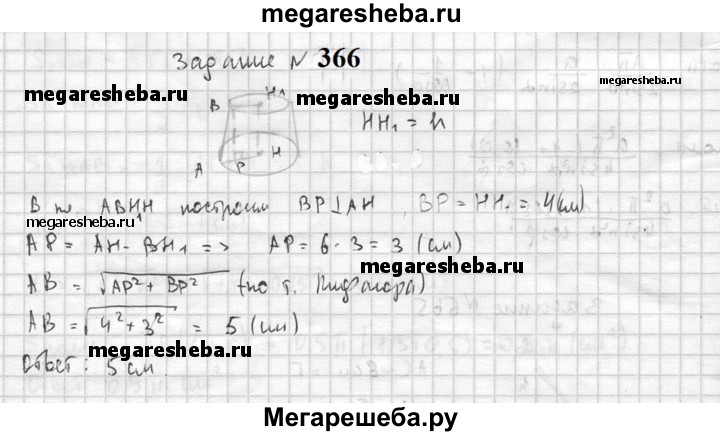 megaresheba.ru
Задание № 366
megaresheba.ru
B H₁ megaresheba.ru
megaresheba.ru
HH₁ = h
A P H
В тр ABH₁H построим BP⊥AH, BP = HH₁ = 4(см)
megaresheba.ru
AP = AH - BH₁ => AP = 6 - 3 = 3 (см)
megaresheba.ru
AB = √AP² + BP² (по т. Пифагора)
AB = √4² + 3² = 5 (см)
megaresheba.ru
Ответ: 5 см
Мегарешеба.ру